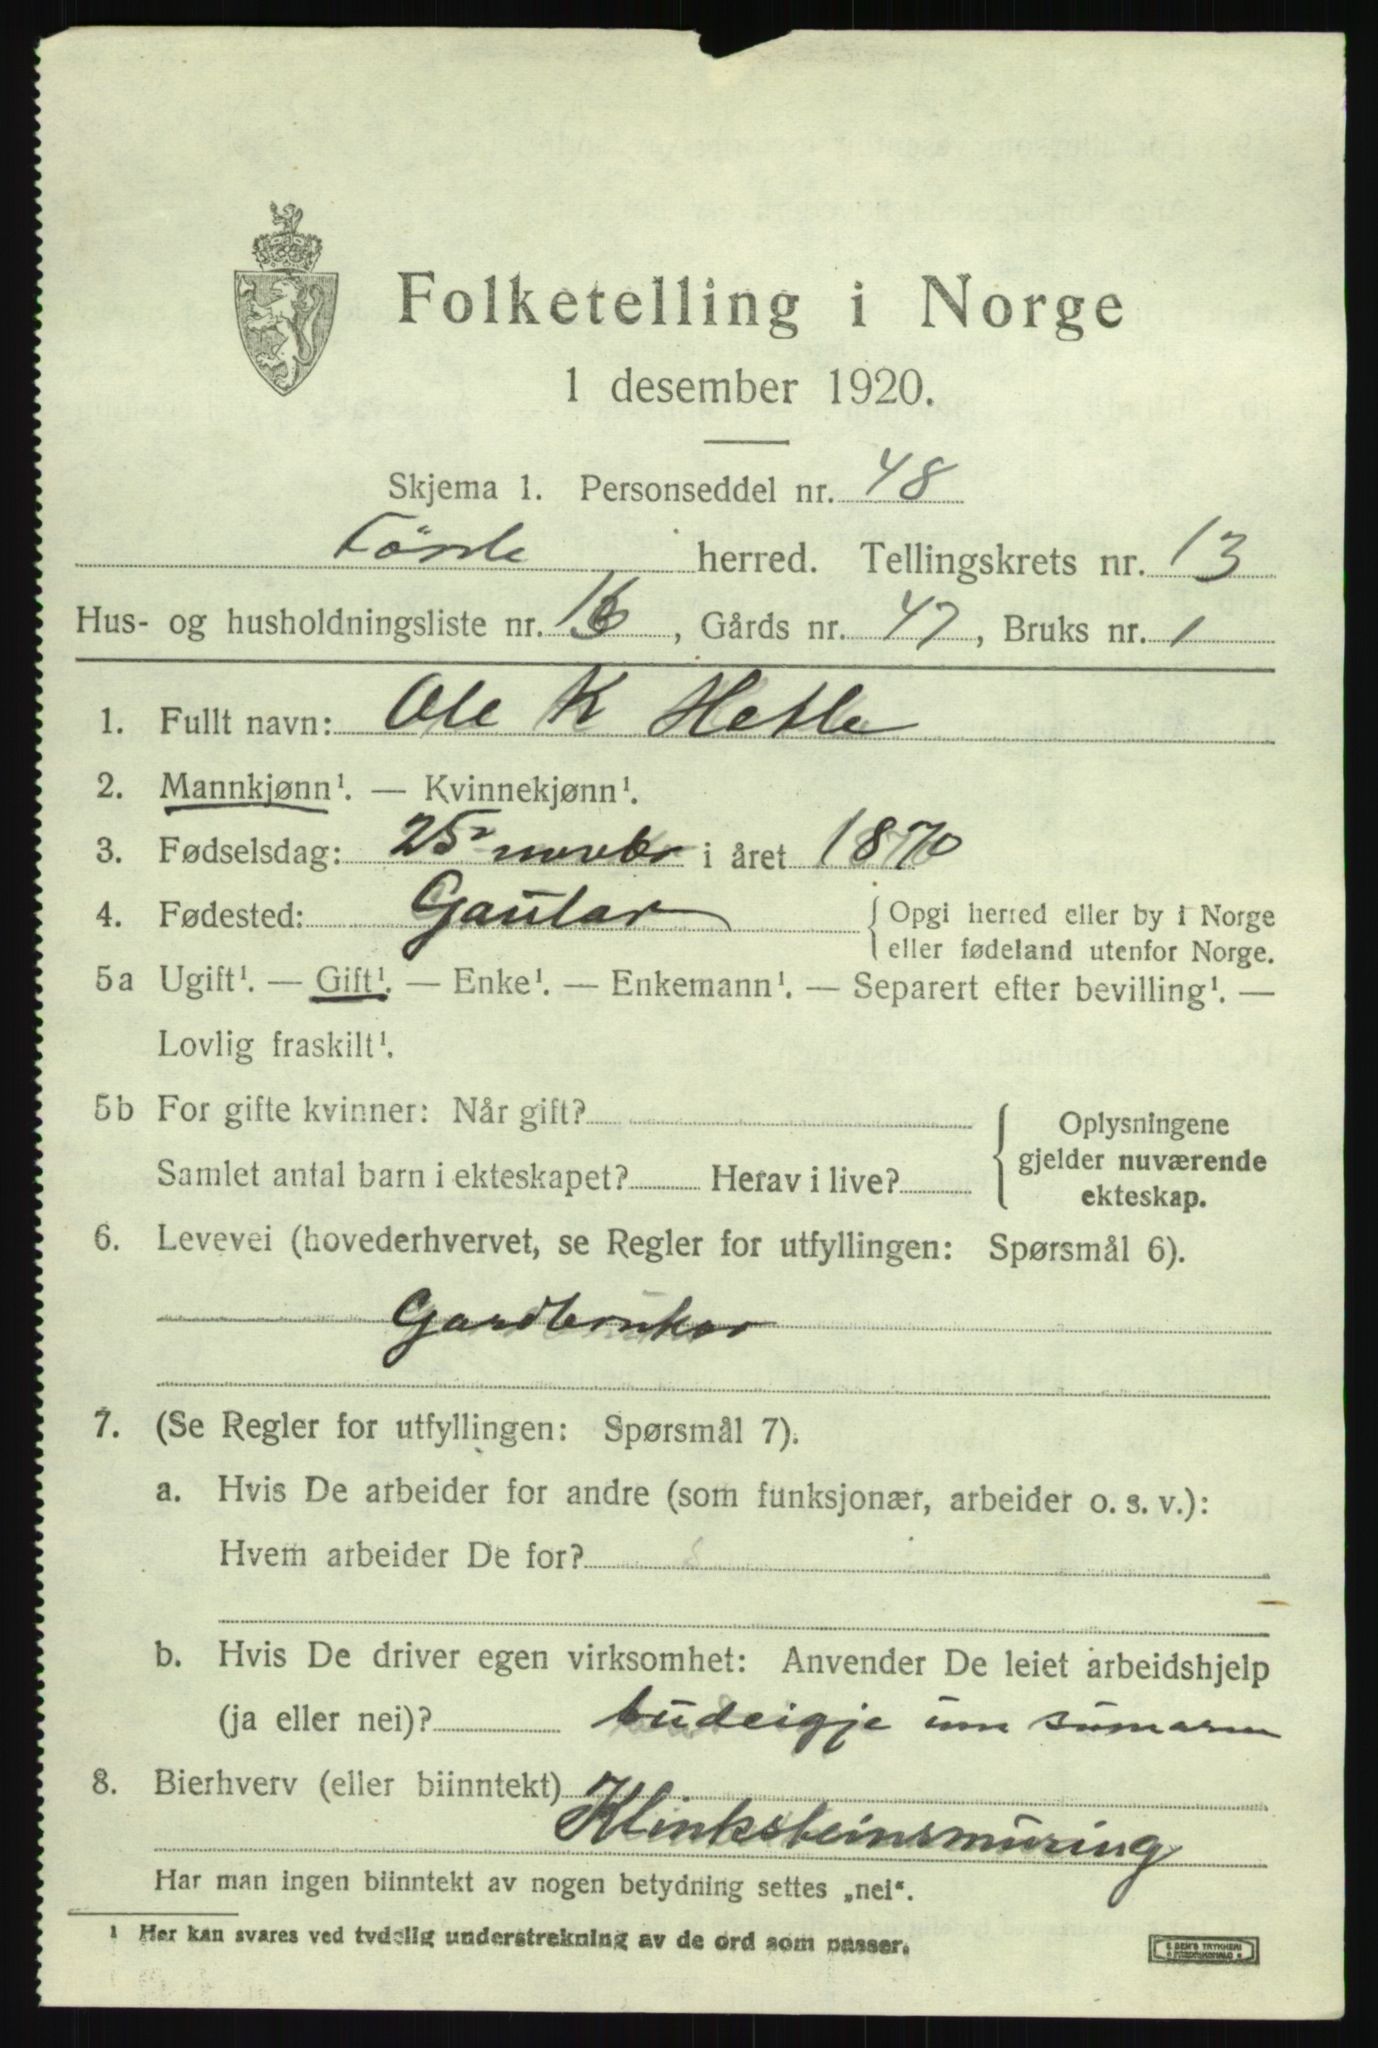 Folketelling i Norge
1 desember 1920.
Skjema 1. Personseddel nr. 48
Förde herred. Tellingskrets nr. 13
Hus- og husholdningsliste nr. 16, Gårds nr. 47, Bruks nr. 1
1. Fullt navn: Ole K Hetle
2. Mannkjønn¹. — Kvinnekjønn¹.
3. Fødselsdag: 25 novbr i året 1870
4. Fødested: Gaular { Opgi herred eller by i Norge
eller fødeland utenfor Norge.
5a Ugift¹. — Gift¹. — Enke¹. — Enkemann¹. — Separert efter bevilling¹. —
Lovlig fraskilt¹.
5b For gifte kvinner: Når gift?
Samlet antal barn i ekteskapet? Herav i live?
Oplysningene
gjelder nuværende
ekteskap.
6. Levevei (hovederhvervet, se Regler for utfyllingen: Spørsmål 6).
Gardbrukar
7. (Se Regler for utfyllingen: Spørsmål 7).
a. Hvis De arbeider for andre (som funksjonær, arbeider o. s. v.):
Hvem arbeider De for?
b. Hvis De driver egen virksomhet: Anvender De leiet arbeidshjelp
(ja eller nei)? budeigje um sumaren
8. Bierhverv (eller biinntekt)
Klinksteinsmuring
Har man ingen biinntekt av nogen betydning settes „nei".
¹ Her kan svares ved tydelig understrekning av de ord som passer.